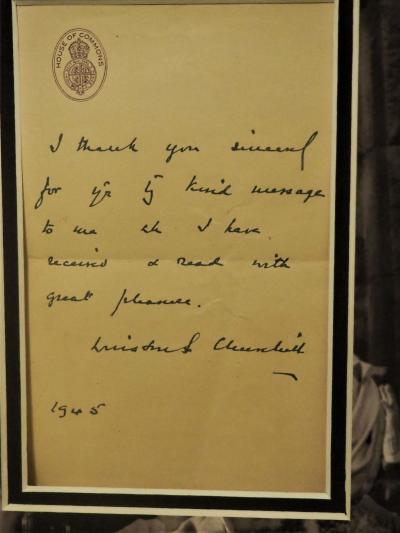 HOUSE OF COMMONS
I thank you sincerely
for yr vy kind message
to me wh I have
received & read with
great pleasure.
Winston S. Churchill
1945